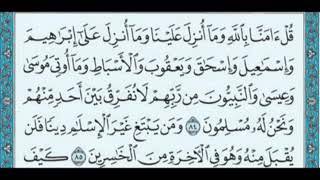 قُلْ ءَامَنَّا بِٱللَّهِ وَمَآ أُنزِلَ عَلَيْنَا وَمَآ أُنزِلَ عَلَىٰٓ إِبْرَٰهِيمَ
وَإِسْمَٰعِيلَ وَإِسْحَٰقَ وَيَعْقُوبَ وَٱلْأَسْبَاطِ وَمَآ أُوتِيَ مُوسَىٰ
وَعِيسَىٰ وَٱلنَّبِيُّونَ مِن رَّبِّهِمْ لَا نُفَرِّقُ بَيْنَ أَحَدٍ مِّنْهُمْ
وَنَحْنُ لَهُۥ مُسْلِمُونَ ٨٤ وَمَن يَبْتَغِ غَيْرَ ٱلْإِسْلَٰمِ دِينًا فَلَن
يُقْبَلَ مِنْهُ وَهُوَ فِي ٱلْءَاخِرَةِ مِنَ ٱلْخَٰسِرِينَ ٨٥ كَيْفَ